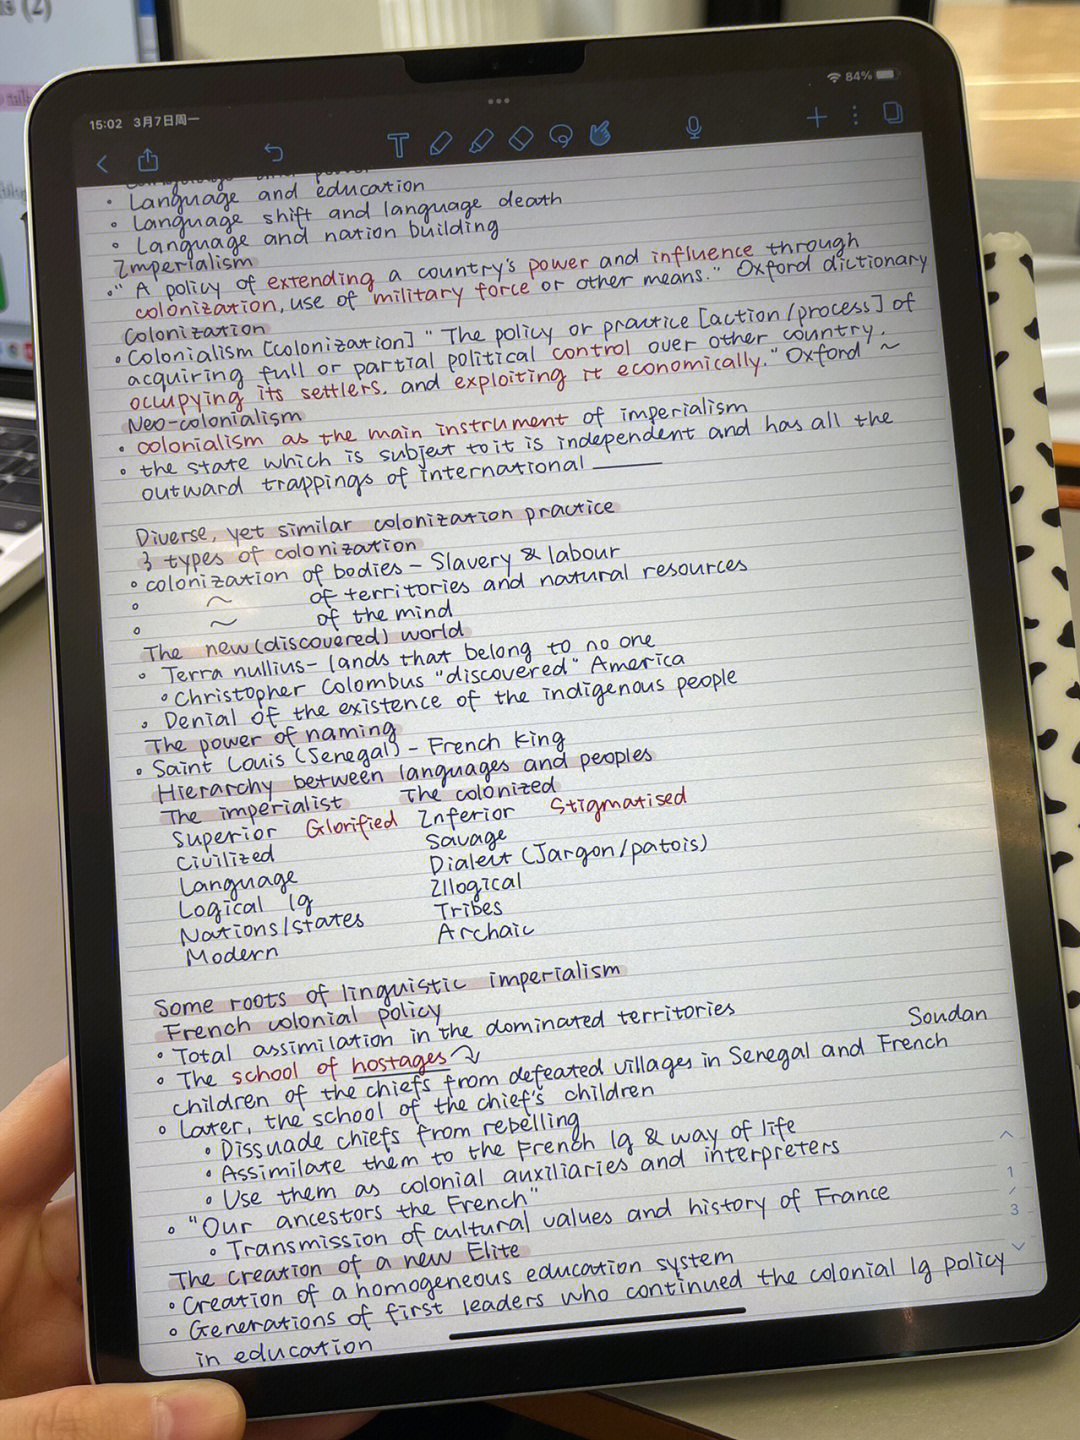 15:02 3月7日周一
84%
• Language and education
• Language shift and language death
• Language and nation building
Imperialism
• " A policy of extending a country's power and influence through
colonization, use of military force or other means." Oxford dictionary
Colonization
• Colonialism [colonization] " The policy or practice [action/process] of
acquiring full or partial political control over other country,
occupying its settlers, and exploiting it economically." Oxford ~
Neo-colonialism
• colonialism as the main instrument of imperialism
• the state which is subject to it is independent and has all the
outward trappings of international ____
Diverse, yet similar colonization practice
3 types of colonization
• colonization of bodies - Slavery & labour
• ~ of territories and natural resources
• ~ of the mind
The new (discovered) world
• Terra nullius - lands that belong to no one
• Christopher Colombus "discovered" America
• Denial of the existence of the indigenous people
The power of naming
• Saint Louis (Senegal) - French King
Hierarchy between languages and peoples
The imperialist The colonized
Superior Glorified Inferior Stigmatised
Civilized Savage
Language Dialect (Jargon/patois)
Logical lg Illogical
Nations/states Tribes
Modern Archaic
Some roots of linguistic imperialism
French colonial policy
• Total assimilation in the dominated territories
• The school of hostages Soudan
children of the chiefs from defeated villages in Senegal and French
• Later, the school of the chief's children
• Dissuade chiefs from rebelling
• Assimilate them to the French lg & way of life
• Use them as colonial auxiliaries and interpreters
• "Our ancestors the French"
• Transmission of cultural values and history of France
The creation of a new Elite
• Creation of a homogeneous education system
• Generations of first leaders who continued the colonial lg policy
in education
1
/
3